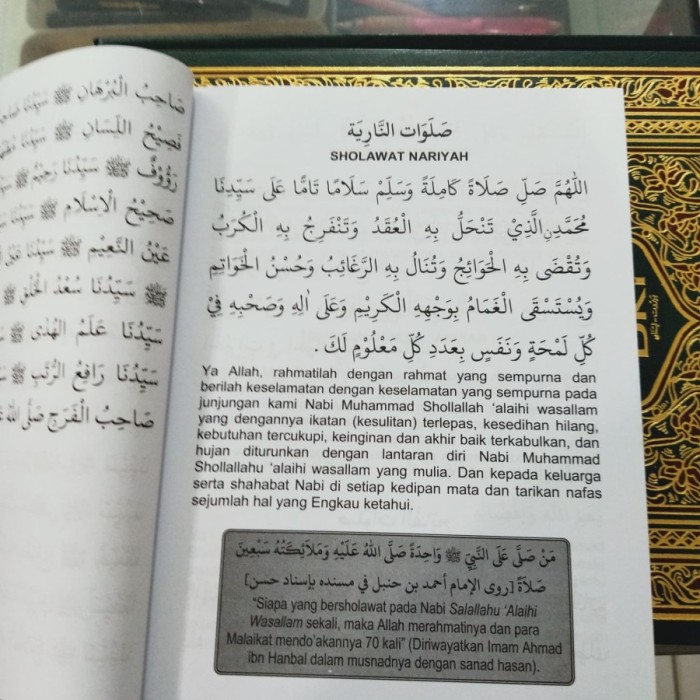 صَاحِبُ الْبُرْهَانِ ﷺ سَيِّدُنَا
فَصِيْحُ اللِّسَانِ ﷺ سَيِّدُنَا
رَؤُوْفٌ ﷺ سَيِّدُنَا رَحِيْمٌ ﷺ
صَحِيْحُ الْإِسْلَامِ ﷺ سَيِّدُنَا
عَيْنُ النَّعِيْمِ ﷺ سَيِّدُنَا عَيْنُ
ﷺ سَيِّدُنَا سَعْدُ الْخَلْقِ ﷺ
سَيِّدُنَا عَلَمُ الْهُدٰى ﷺ
سَيِّدُنَا رَافِعُ الرُّتَبِ ﷺ
صَاحِبُ الْفَرَجِ صَلَّى اللهُ
صَلَوَات النَّارِيَة
SHOLAWAT NARIYAH
اَللّٰهُمَّ صَلِّ صَلَاةً كَامِلَةً وَسَلِّمْ سَلَامًا تَامًّا عَلَى سَيِّدِنَا
مُحَمَّدِنِ الَّذِيْ تَنْحَلُّ بِهِ الْعُقَدُ وَتَنْفَرِجُ بِهِ الْكُرَبُ
وَتُقْضَى بِهِ الْحَوَائِجُ وَتُنَالُ بِهِ الرَّغَائِبُ وَحُسْنُ الْخَوَاتِمِ
وَيُسْتَسْقَى الْغَمَامُ بِوَجْهِهِ الْكَرِيْمِ وَعَلَى اٰلِهِ وَصَحْبِهِ فِيْ
كُلِّ لَمْحَةٍ وَنَفَسٍ بِعَدَدِ كُلِّ مَعْلُوْمٍ لَكَ .
Ya Allah, rahmatilah dengan rahmat yang sempurna dan
berilah keselamatan dengan keselamatan yang sempurna pada
junjungan kami Nabi Muhammad Shollallah 'alaihi wasallam
yang dengannya ikatan (kesulitan) terlepas, kesedihan hilang,
kebutuhan tercukupi, keinginan dan akhir baik terkabulkan, dan
hujan diturunkan dengan lantaran diri Nabi Muhammad
Shollallahu 'alaihi wasallam yang mulia. Dan kepada keluarga
serta shahabat Nabi di setiap kedipan mata dan tarikan nafas
sejumlah hal yang Engkau ketahui.
مَنْ صَلَّى عَلَى النَّبِيِّ ﷺ وَاحِدَةً صَلَّى اللهُ عَلَيْهِ وَمَلَائِكَتُهُ سَبْعِيْنَ
صَلَاةً [روى الإمام أحمد بن حنبل في مسنده بإسناد حسن]
"Siapa yang bersholawat pada Nabi Salallahu 'Alaihi
Wasallam sekali, maka Allah merahmatinya dan para
Malaikat mendo'akannya 70 kali" (Diriwayatkan Imam Ahmad
ibn Hanbal dalam musnadnya dengan sanad hasan).